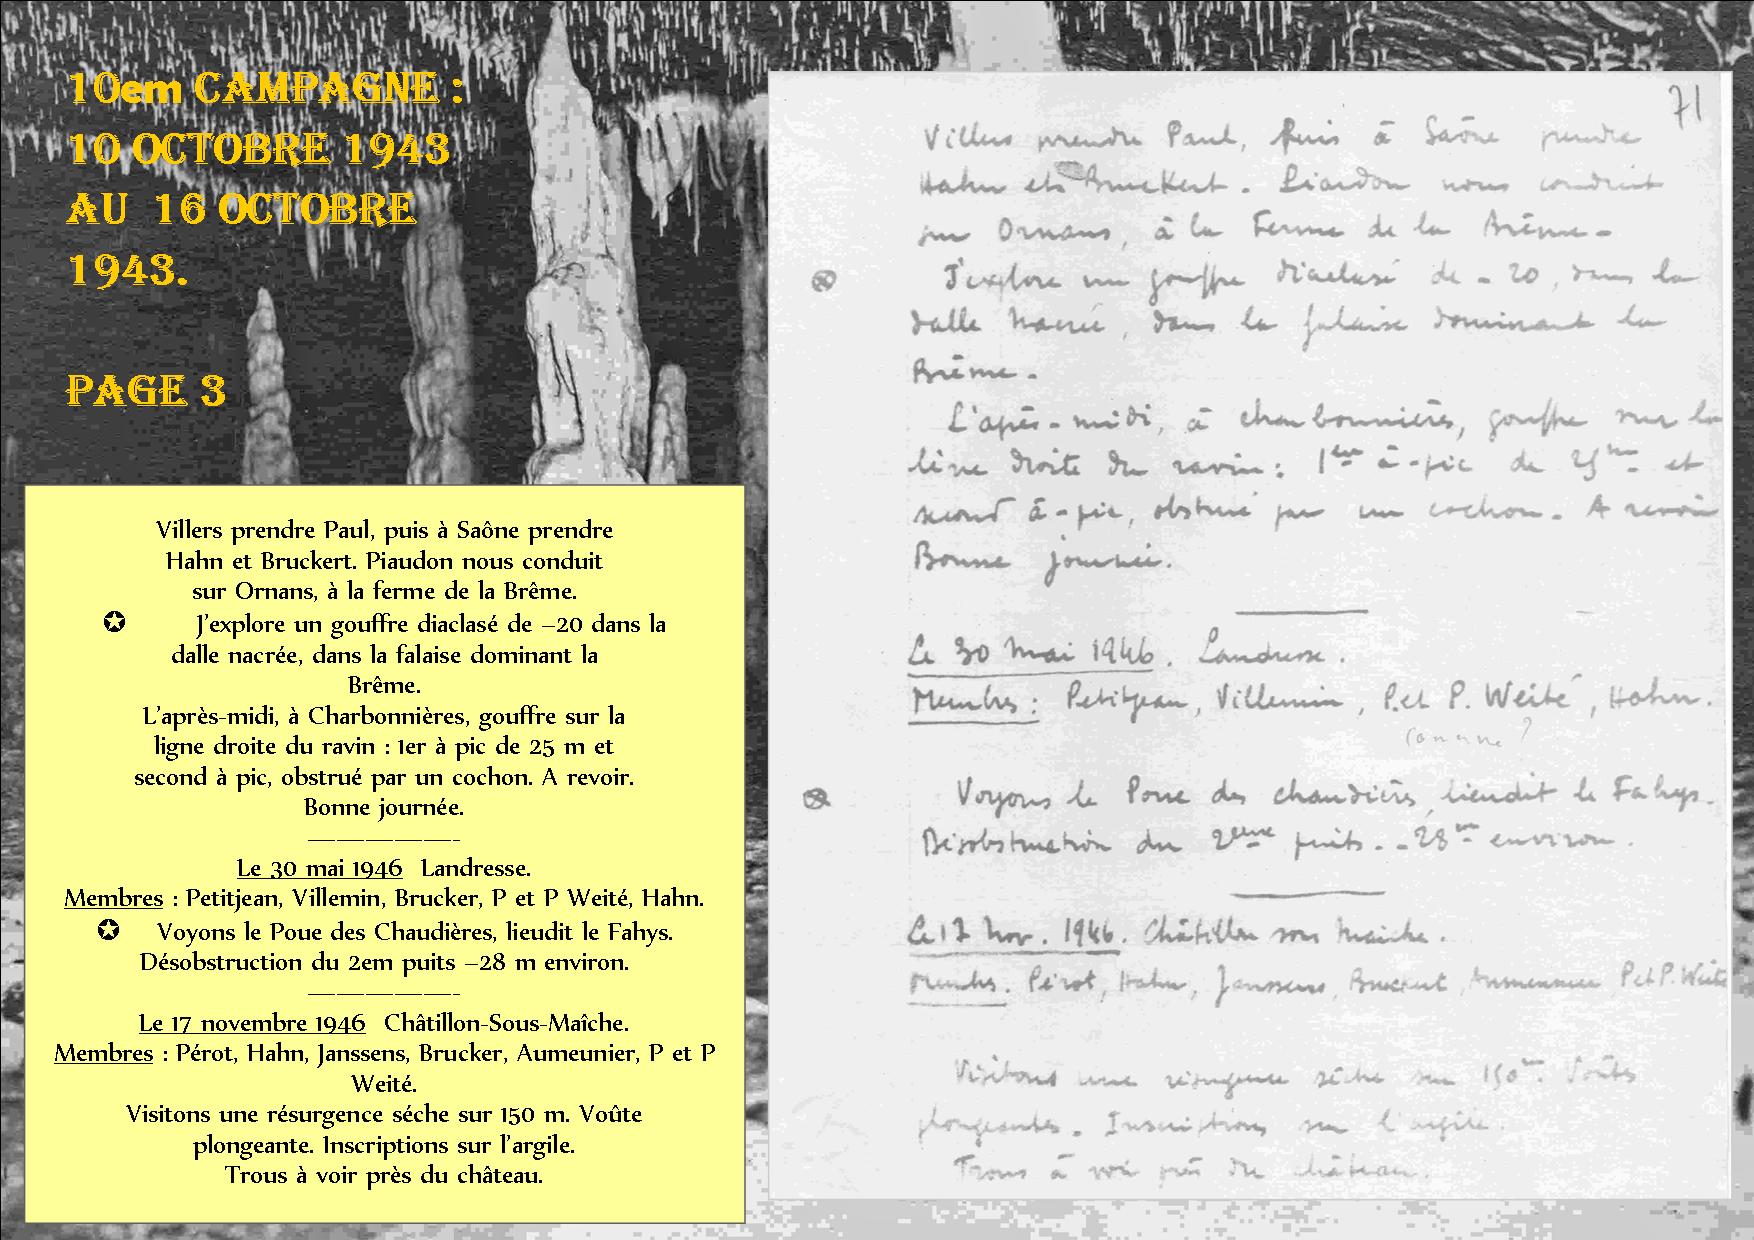 10em CAMPAGNE :
10 OCTOBRE 1943
AU 16 OCTOBRE
1943.
PAGE 3
Villers prendre Paul, puis à Saône prendre
Hahn et Bruckert. Piaudon nous conduit
sur Ornans, à la ferme de la Brême.
✪ J'explore un gouffre diaclasé de –20 dans la
dalle nacrée, dans la falaise dominant la
Brême.
L'après-midi, à Charbonnières, gouffre sur la
ligne droite du ravin : 1er à pic de 25 m et
second à pic, obstrué par un cochon. A revoir.
Bonne journée.
Le 30 mai 1946 Landresse.
Membres : Petitjean, Villemin, Brucker, P et P Weité, Hahn.
✪ Voyons le Poue des Chaudières, lieudit le Fahys.
Désobstruction du 2em puits –28 m environ.
Le 17 novembre 1946 Châtillon-Sous-Maîche.
Membres : Pérot, Hahn, Janssens, Brucker, Aumeunier, P et P
Weité.
Visitons une résurgence séche sur 150 m. Voûte
plongeante. Inscriptions sur l'argile.
Trous à voir près du château.
71
Villers prendre Paul, puis à Saône prendre
Hahn et Bruckert. Piaudon nous conduit
sur Ornans, à la Ferme de la Brême.
J'explore un gouffre diaclasé de - 20, dans la
dalle nacrée, dans la falaise dominant la
Brême.
L'après-midi, à charbonnières, gouffre sur la
droite du ravin : 1er à-pic de 25m et
second à-pic, obstrué par un cochon. A revoir
Bonne journée.
Le 30 mai 1946. Landresse.
Membres : Petitjean, Villemin, P. et P. Weité, Hahn.
Voyons le Poue des chaudières, lieudit le Fahys.
Désobstruction du 2eme puits. - 28m environ.
Le 17 Nov. 1946. Châtillon sous Maiche.
Membres. Pérot, Hahn, Janssens, Bruckert, Aumeunier P et P. Weité
Visitons une résurgence sèche sur 150m. Voûtes
plongeantes. Inscriptions sur l'argile.
Trous à voir près du château.